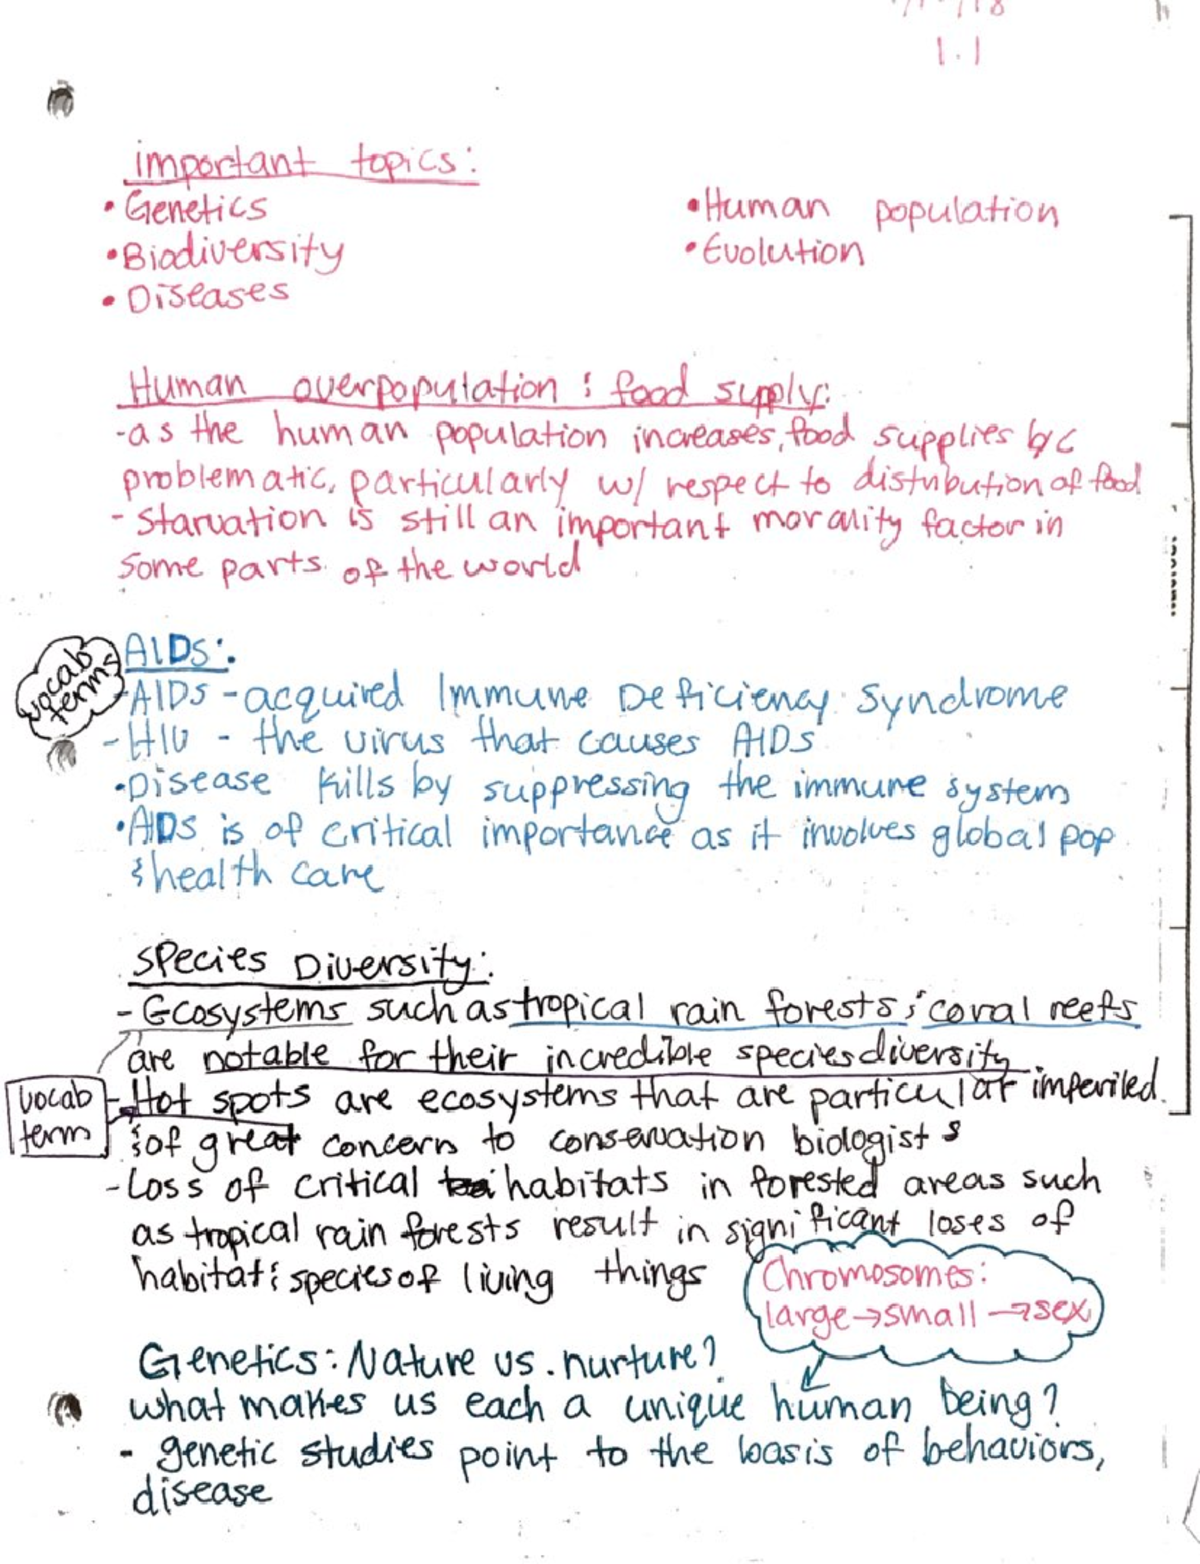 1.1
important topics:
• Genetics
• Human population
• Biodiversity
• Evolution
• Diseases
Human overpopulation & food supply:
- as the human population increases, food supplies b/c
problematic, particularly w/ respect to distribution of food
- Starvation is still an important morality factor in
some parts of the world
vocab
terms
AIDS:
- AIDS - acquired Immune Deficiency Syndrome
- HIV - the virus that causes AIDS
• Disease kills by suppressing the immune system
• AIDS is of critical importance as it involves global pop
& health care
Species Diversity:
- Ecosystems such as tropical rain forests & coral reefs
are notable for their incredible species diversity
vocab
term
- Hot spots are ecosystems that are particular imperiled
& of great concern to conservation biologists
- Loss of critical habitats in forested areas such
as tropical rain forests result in significant loses of
habitat & species of living things
Chromosomes:
large → small → sex
Genetics: Nature vs. nurture?
what makes us each a unique human being?
- genetic studies point to the basis of behaviors,
disease